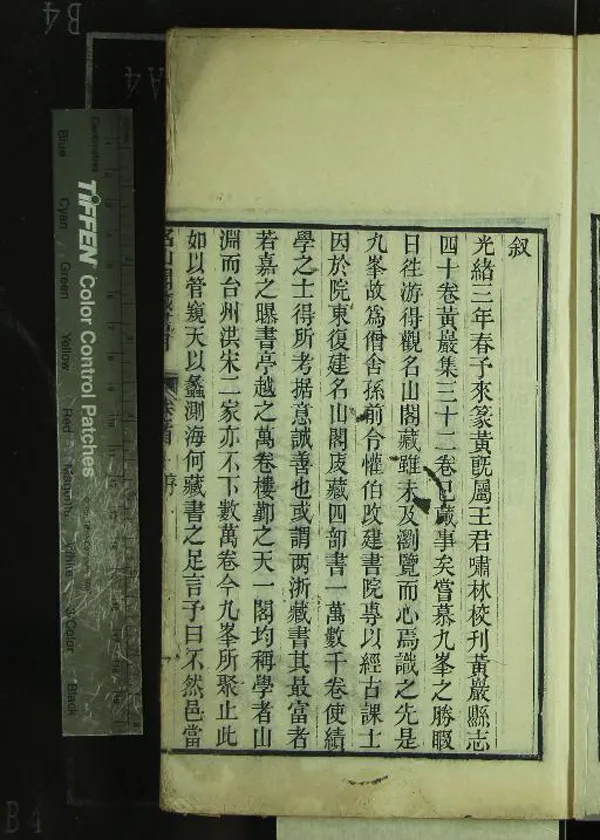 叙
光緒三年春予來篆黃既屬王君嘯林校刊黃巖縣志
四十卷黃巖集三十二卷已蕆事矣嘗慕九峯之勝暇
日往游得觀名山閣藏雖未及瀏覽而心焉識之先是
九峯故爲僧舍孫前令懽伯改建書院專以經古課士
因於院東復建名山閣庋藏四部書一萬數千卷使績
學之士得所考据意誠善也或謂两浙藏書其最富者
若嘉之曝書亭越之萬卷樓鄞之天一閣均稱學者山
淵而台州洪宋二家亦不下數萬卷今九峯所聚止此
如以管窺天以蠡測海何藏書之足言予曰不然邑當
名山閣藏書目
卷首
序
TIFFEN Color Control Patches
Centimetres
Blue Cyan Green Yellow Red Magenta White 3/Color Black
B4
A4
B4